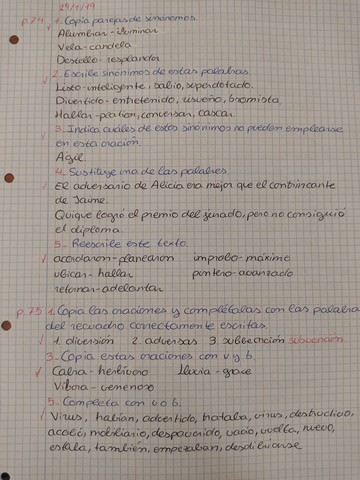 29/1/19
p.74 1. Copia parejas de sinónimos.
Alumbrar - iluminar
Vela - candela
Destello - resplandor
2. Escribe sinónimos de estas palabras
Listo - inteligente, sabio, superdotado.
Divertido - entretenido, risueño, bromista.
Hablar - conversar, cascar.
3. Indica cuáles de estos sinónimos no pueden emplearse
en esta oración.
Ágil
4. Sustituye una de las palabras
El adversario de Alicia era mejor que el contrincante
de Jaume.
Quique logró el premio del jurado, pero no consiguió
el diploma.
5. Reescribe este texto.
acordaron - planearon ímprobo - máximo
ubicar - hallar puntero - avanzado
retomar - adelantar
p.75 1. Copia las oraciones y complétalas con las palabras
del recuadro correctamente escritas.
1 diversión 2. adversas 3 subvención
3. Copia estas oraciones con v y b.
Cabra - herbívoro lluvia - grave
Víbora - venenoso
5. Completa con v o b.
Virus, habían, advertido, trataba, virus, destructivo,
acabó, mobiliario, despavorido, vacío, vuelta, nuevo,
estaba, también, empezaban, desdibujarse